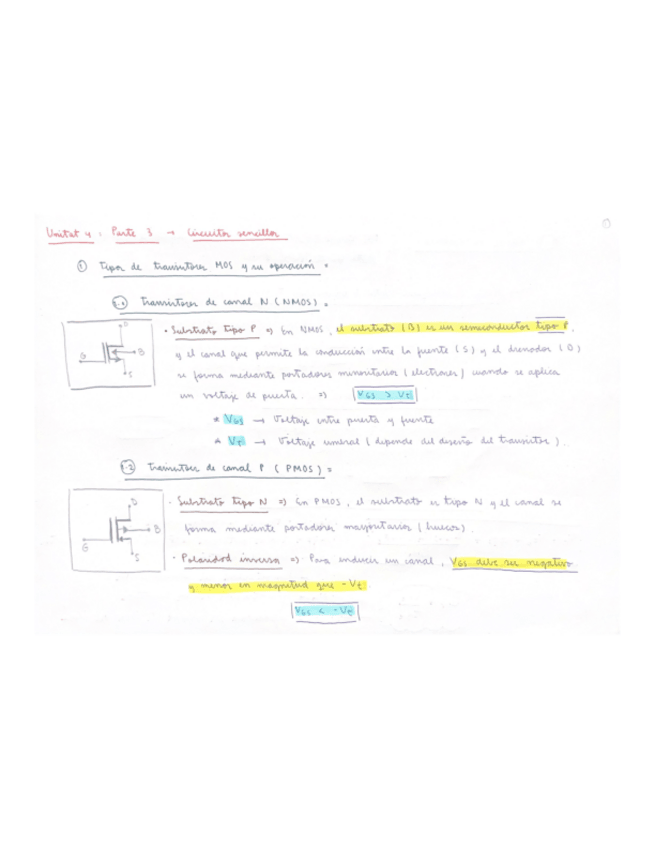 Unitat 4 : Parte 3 → Circuitos sencillos
① Tipos de transistores MOS y su operación =
1.1 Transistores de canal N (NMOS) =
D
G
B
S
· Substrato tipo P => En NMOS, el substrato (B) es un semiconductor tipo P,
y el canal que permite la conducción entre la fuente (S) y el drenador (D)
se forma mediante portadores minoritarios (electrones) cuando se aplica
un voltaje de puerta. => VGS > Vt
* VGS → Voltaje entre puerta y fuente
* Vt → Voltaje umbral (depende del diseño del transistor).
1.2 Transistores de canal P (PMOS) =
D
G
B
S
· Substrato tipo N => En PMOS, el substrato es tipo N y el canal se
forma mediante portadores mayoritarios (huecos).
· Polaridad inversa => Para inducir un canal, VGS debe ser negativo
y menor en magnitud que -Vt.
VGS < -Vt